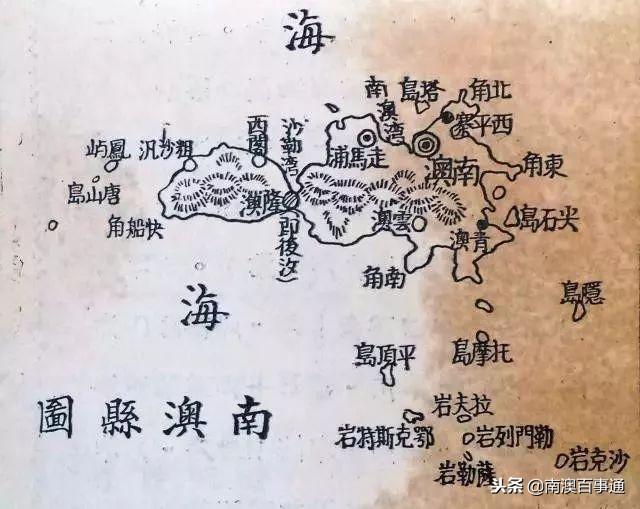 海
北角
塔島
南澳湾
西平寨
走馬埔
沙勒湾
西閣
粗沙汛
鳳屿
唐山島
快船角
隆澳
(即後汐)
南澳
東角
雲澳
青澳
尖石島
南角
隱島
海
托摩島
平頂島
南澳縣圖
拉夫岩
鄂克斯特岩
勒門列岩
薩勒岩
沙克岩
头条 @南澳百事通